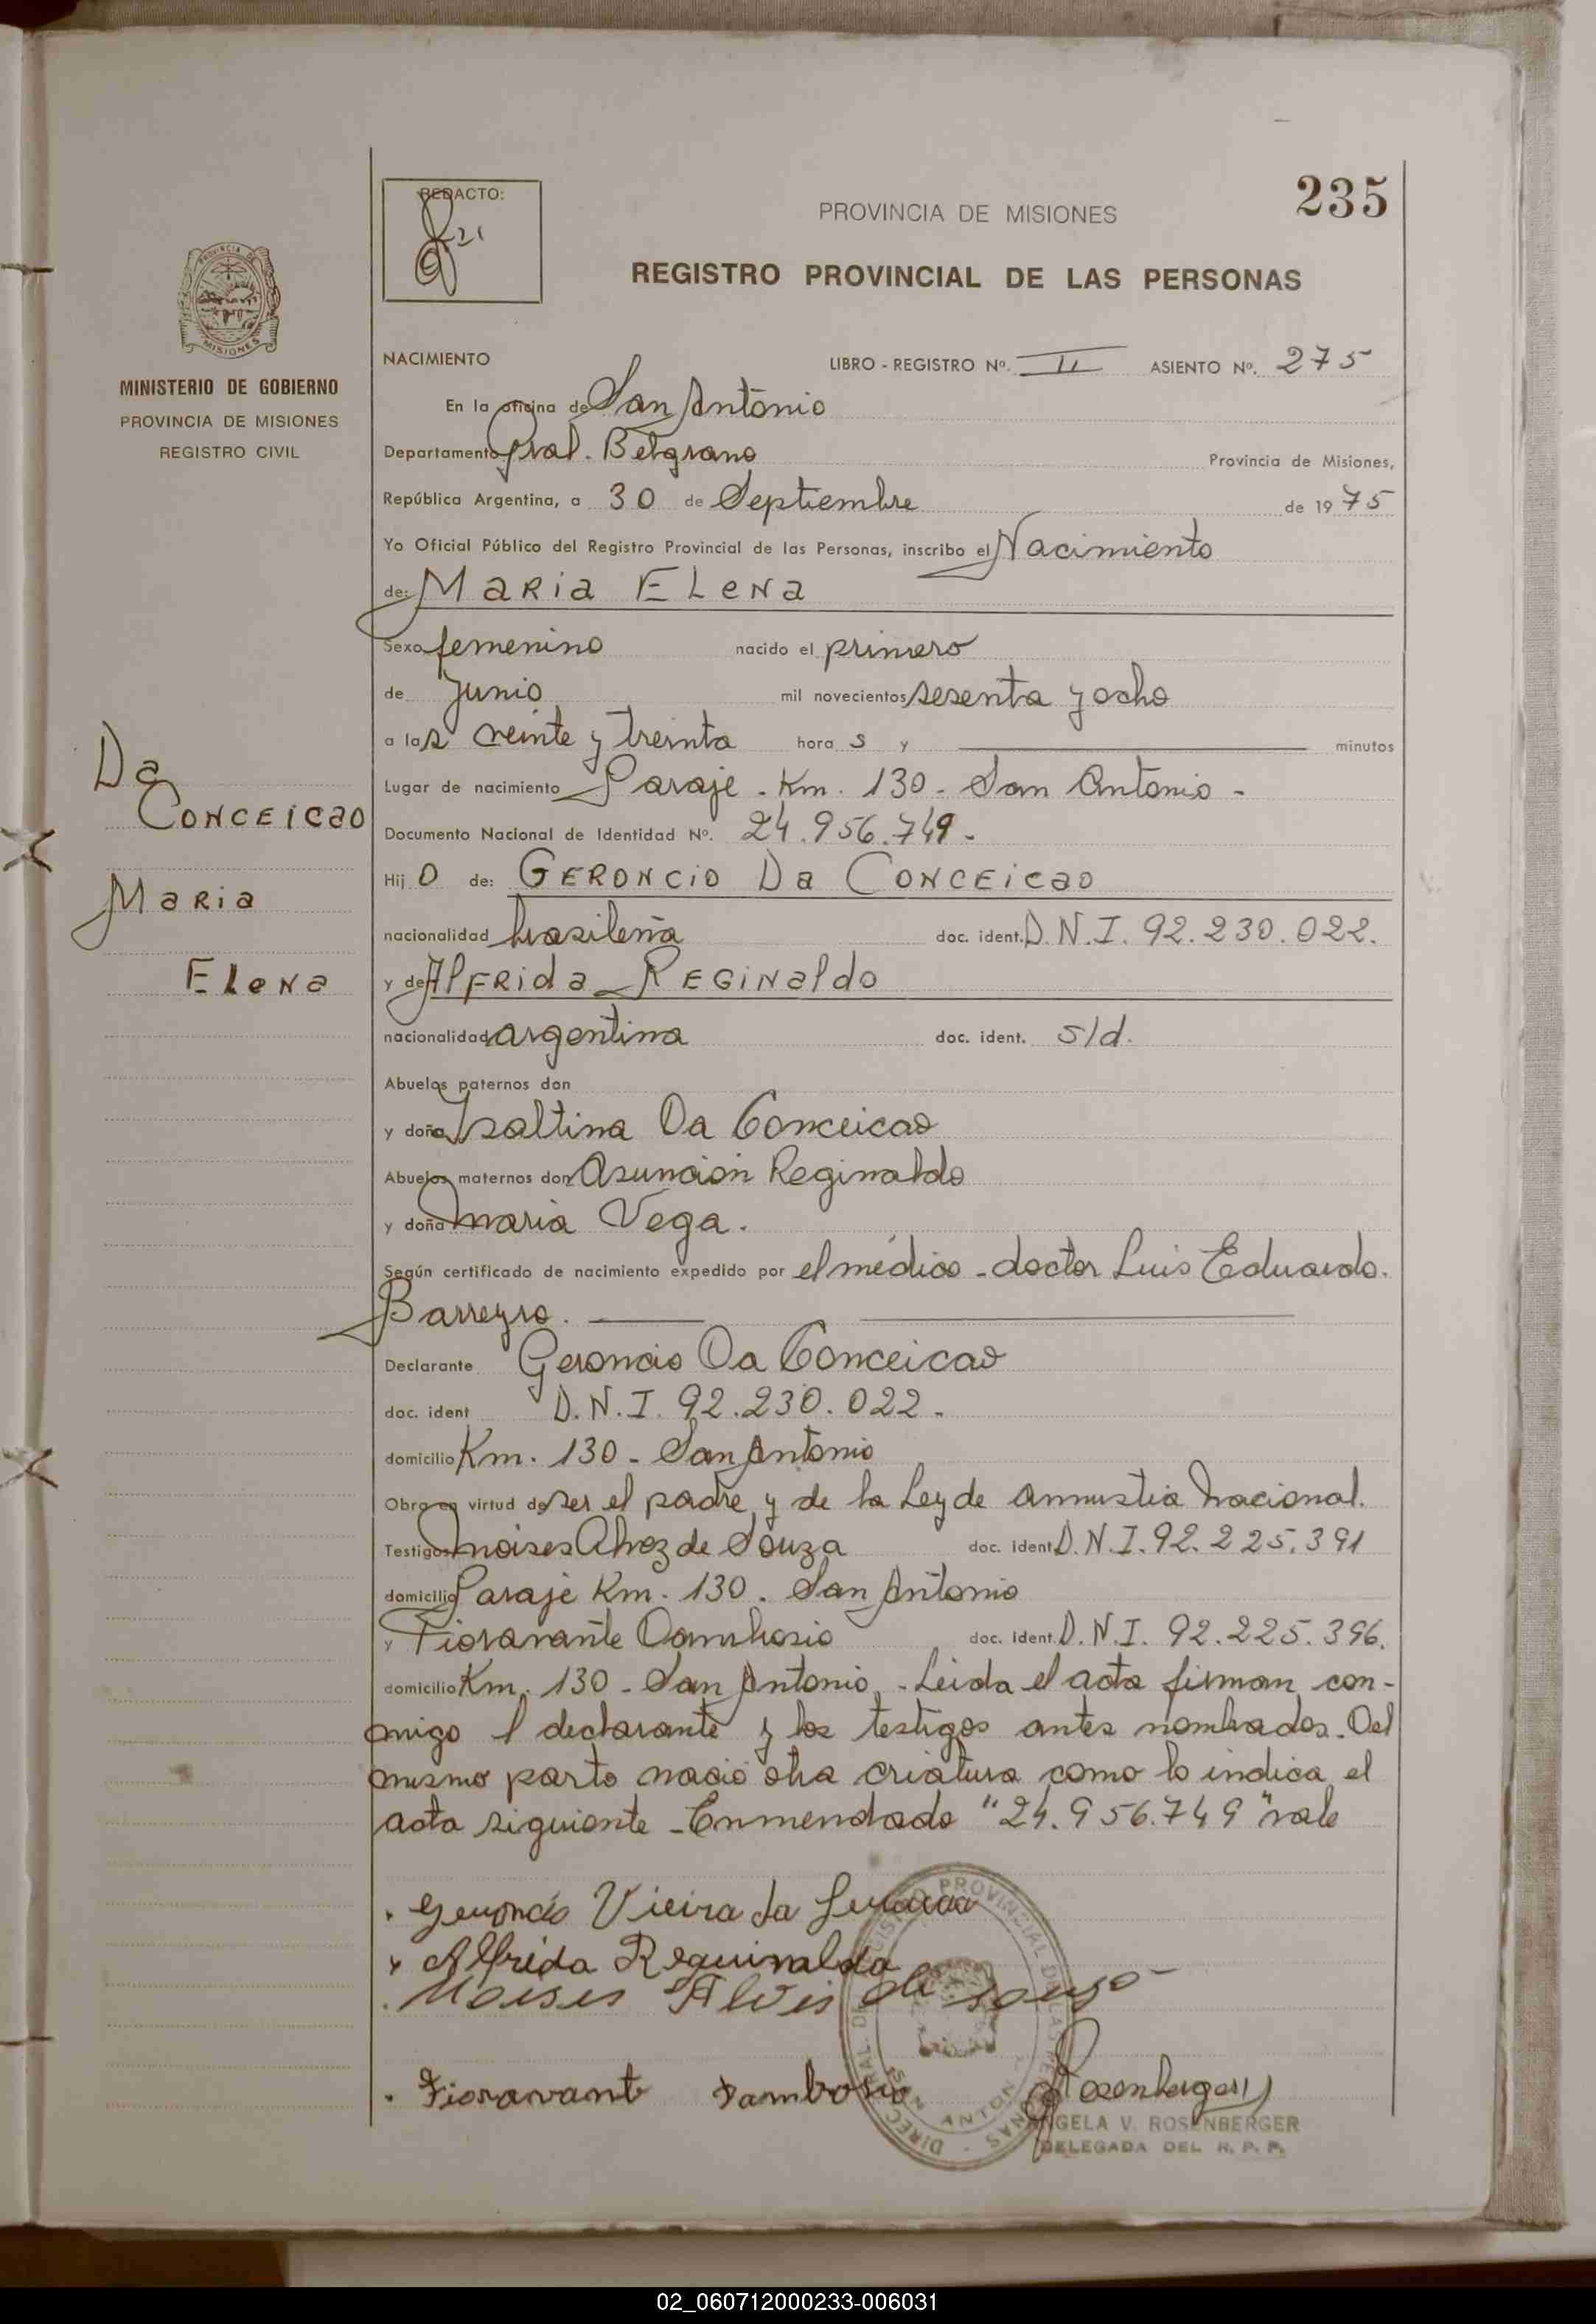 REDACTO:
PROVINCIA DE MISIONES
235
REGISTRO PROVINCIAL DE LAS PERSONAS
PROVINCIA DE
MISIONES
MINISTERIO DE GOBIERNO
PROVINCIA DE MISIONES
REGISTRO CIVIL
NACIMIENTO LIBRO - REGISTRO Nº. II ASIENTO Nº. 275
En la oficina de San Antonio
Departamento Gral. Belgrano Provincia de Misiones,
República Argentina, a 30 de Septiembre de 1975
Yo Oficial Público del Registro Provincial de las Personas, inscribo el Nacimiento
de: MARIA ELENA
Sexo femenino nacido el primero
de Junio mil novecientos sesenta y ocho
a las veinte y treinta hora s y minutos
Da
CONCEICAO
MARIA
ELENA
Lugar de nacimiento Paraje - Km. 130 - San Antonio -
Documento Nacional de Identidad Nº. 24.956.749 -
Hij O de: GERONCIO Da CONCEICAO
nacionalidad brasileña doc. ident. D.N.I. 92.230.022.
y de ALFRIDA REGINALDO
nacionalidad argentina doc. ident. s/d.
Abuelos paternos don
y doña Isaltina Da Conceicao
Abuelos maternos don Asunción Reginaldo
y doña Maria Vega.
Según certificado de nacimiento expedido por el médico - doctor Luis Eduardo.
Barreyro.
Declarante Geroncio Da Conceicao
doc. ident D.N.I. 92.230.022 -
domicilio Km. 130 - San Antonio
Obra en virtud de ser el padre y de la Ley de amnistia Nacional.
Testigos Moises Alvez de Souza doc. ident. D.N.I. 92.225.391
domicilio Paraje Km. 130. San Antonio
y Fioravante Dambrosio doc. ident. D.N.I. 92.225.396.
domicilio Km. 130 - San Antonio - Leida el acta firman con-
migo l declarante y los testigos antes nombrados. Del
mismo parto nació otra criatura como lo indica el
acta siguiente - Enmendado "24.956.749" vale
Geroncio Vieira da
Alfrida Reguinalda
Moises Alves de souza
Fioravante Dambrosio
Rosenberger
ANGELA V. ROSENBERGER
DELEGADA DEL R. P. P.
02_060712000233-006031